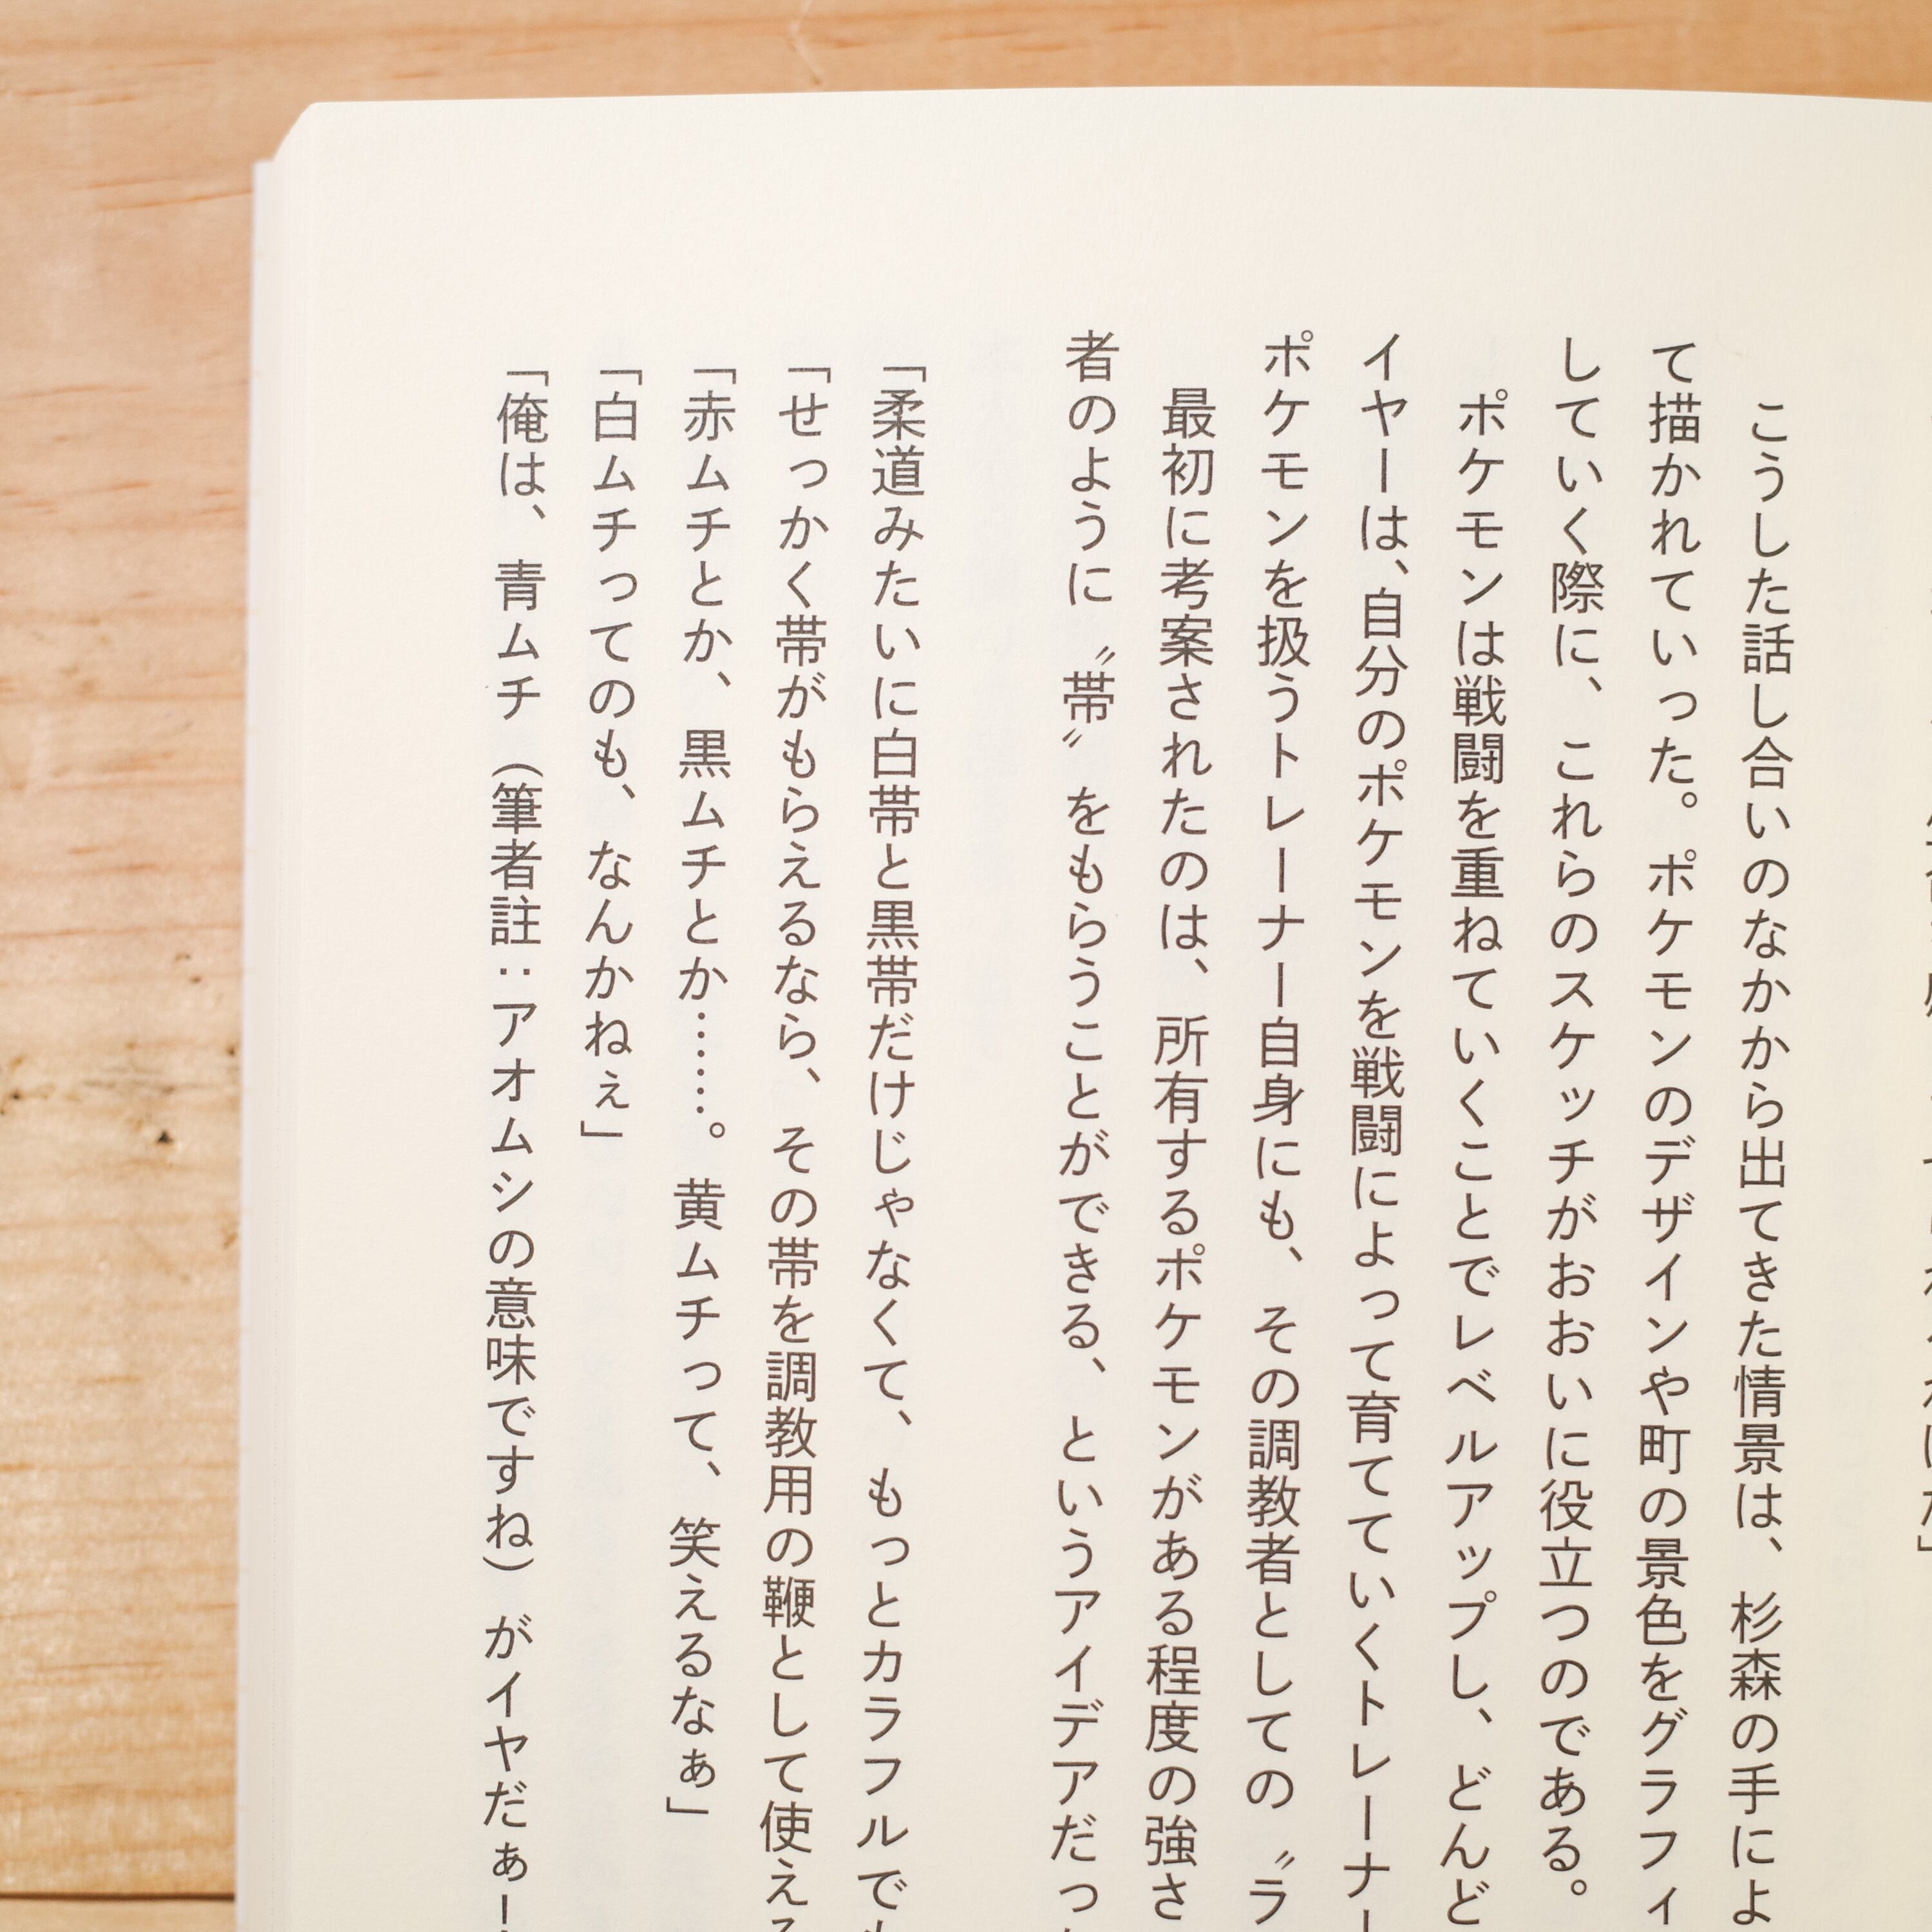 こうした話し合いのなかから出てきた情景は、杉森の手によ
て描かれていった。ポケモンのデザインや町の景色をグラフィ
していく際に、これらのスケッチがおおいに役立つのである。
ポケモンは戦闘を重ねていくことでレベルアップし、どんど
イヤーは、自分のポケモンを戦闘によって育てていくトレーナー
ポケモンを扱うトレーナー自身にも、その調教者としての〝ラ
最初に考案されたのは、所有するポケモンがある程度の強さ
者のように〝帯〟をもらうことができる、というアイデアだっ
「柔道みたいに白帯と黒帯だけじゃなくて、もっとカラフルで
「せっかく帯がもらえるなら、その帯を調教用の鞭として使え
「赤ムチとか、黒ムチとか……。黄ムチって、笑えるなぁ」
「白ムチってのも、なんかねぇ」
「俺は、青ムチ（筆者註：アオムシの意味ですね）がイヤだぁー